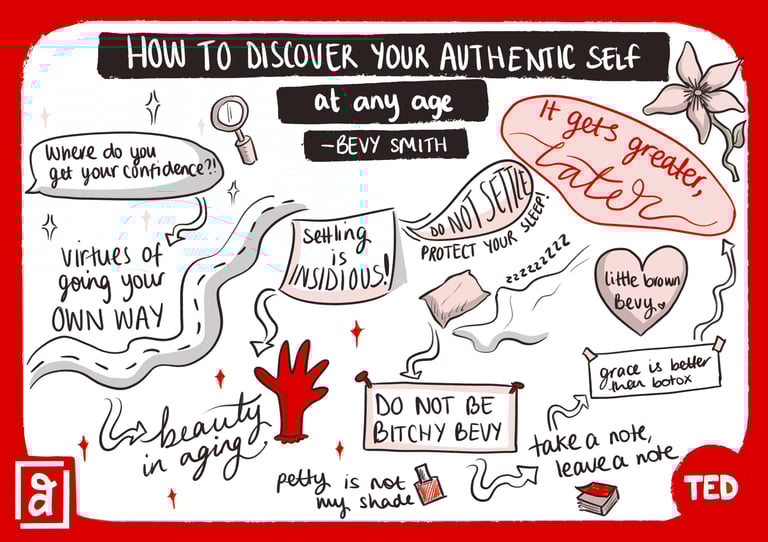 HOW TO DISCOVER YOUR AUTHENTIC SELF
at any age
-BEVY SMITH
Where do you
get your confidence?!
virtues of
going your
OWN WAY
settling
is
INSIDIOUS!
DO NOT SETTLE
PROTECT YOUR SLEEP!
zzzzzzzzz
It gets greater,
Later
little brown
Bevy
grace is better
then botox
beauty
in aging
DO NOT BE
BITCHY BEVY
take a note,
leave a note
petty is not
my shade
a
TED